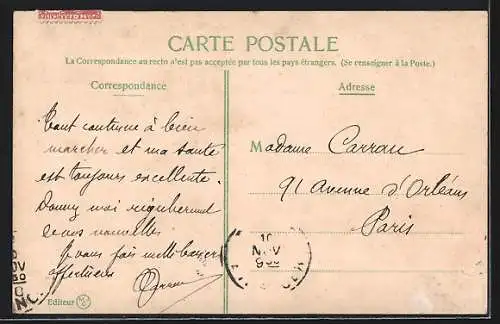 CARTE POSTALE
La Correspondance au recto n'est pas acceptée par tous les pays étrangers. (Se renseigner à la Poste.)
Correspondance
Tout continue à bien
marcher et ma santé
est toujours excellente.
Donnez moi
de vos nouvelles
Je vous fais mille baisers
affectueux
Editeur
Adresse
Madame Carrau
91 Avenue d'Orléans
Paris
10
NOV